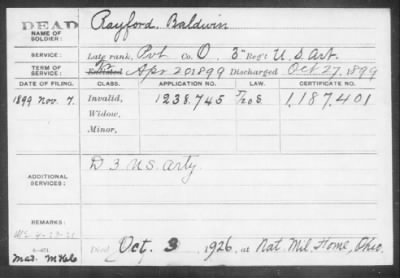 DEAD
NAME OF SOLDIER: Rayford, Baldwin
SERVICE: Late rank, Pvt Co. O, 3" Reg't U.S. Art.
TERM OF SERVICE: Enlisted Apr 20 1899 Discharged Oct 27, 1899
DATE OF FILING. CLASS. APPLICATION NO. LAW. CERTIFICATE NO.
1899 Nov. 7. Invalid, 1238.745 1,187.401
Widow,
Minor,
ADDITIONAL SERVICES: D 3 U.S. Arty
REMARKS:
Died Oct. 3, 1926, at Nat. Mil. Home, Ohio.